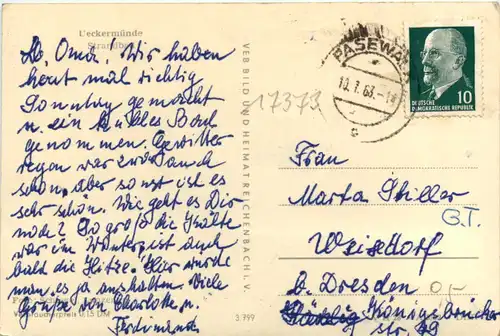 Ueckermünde
Strandb
Lb. Oma! Wir haben
heut mal richtig
Sonntag gemacht
u. ein kühles Bad
genommen. Gewitter
regen war zwar auch
schön, aber so ist es
sehr schön. Wie geht es Dir
noch? So groß die Kälte
war im Winter ist auch
bald die Hitze. Hier würde
man es ja aushalten. Viele
Grüße von Charlotte u.
Ferdinand
Verbraucherpreis 0,15 DM
VEB BILD UND HEIMAT REICHENBACH i. V.
S 799
17373
PASEWA
10.7.63
10
DEUTSCHE
DEMOKRATISCHE REPUBLIK
Frau
Marta Thiller
G.T.
Weisdorf
b. Dresden
Königsbrücker
str 89